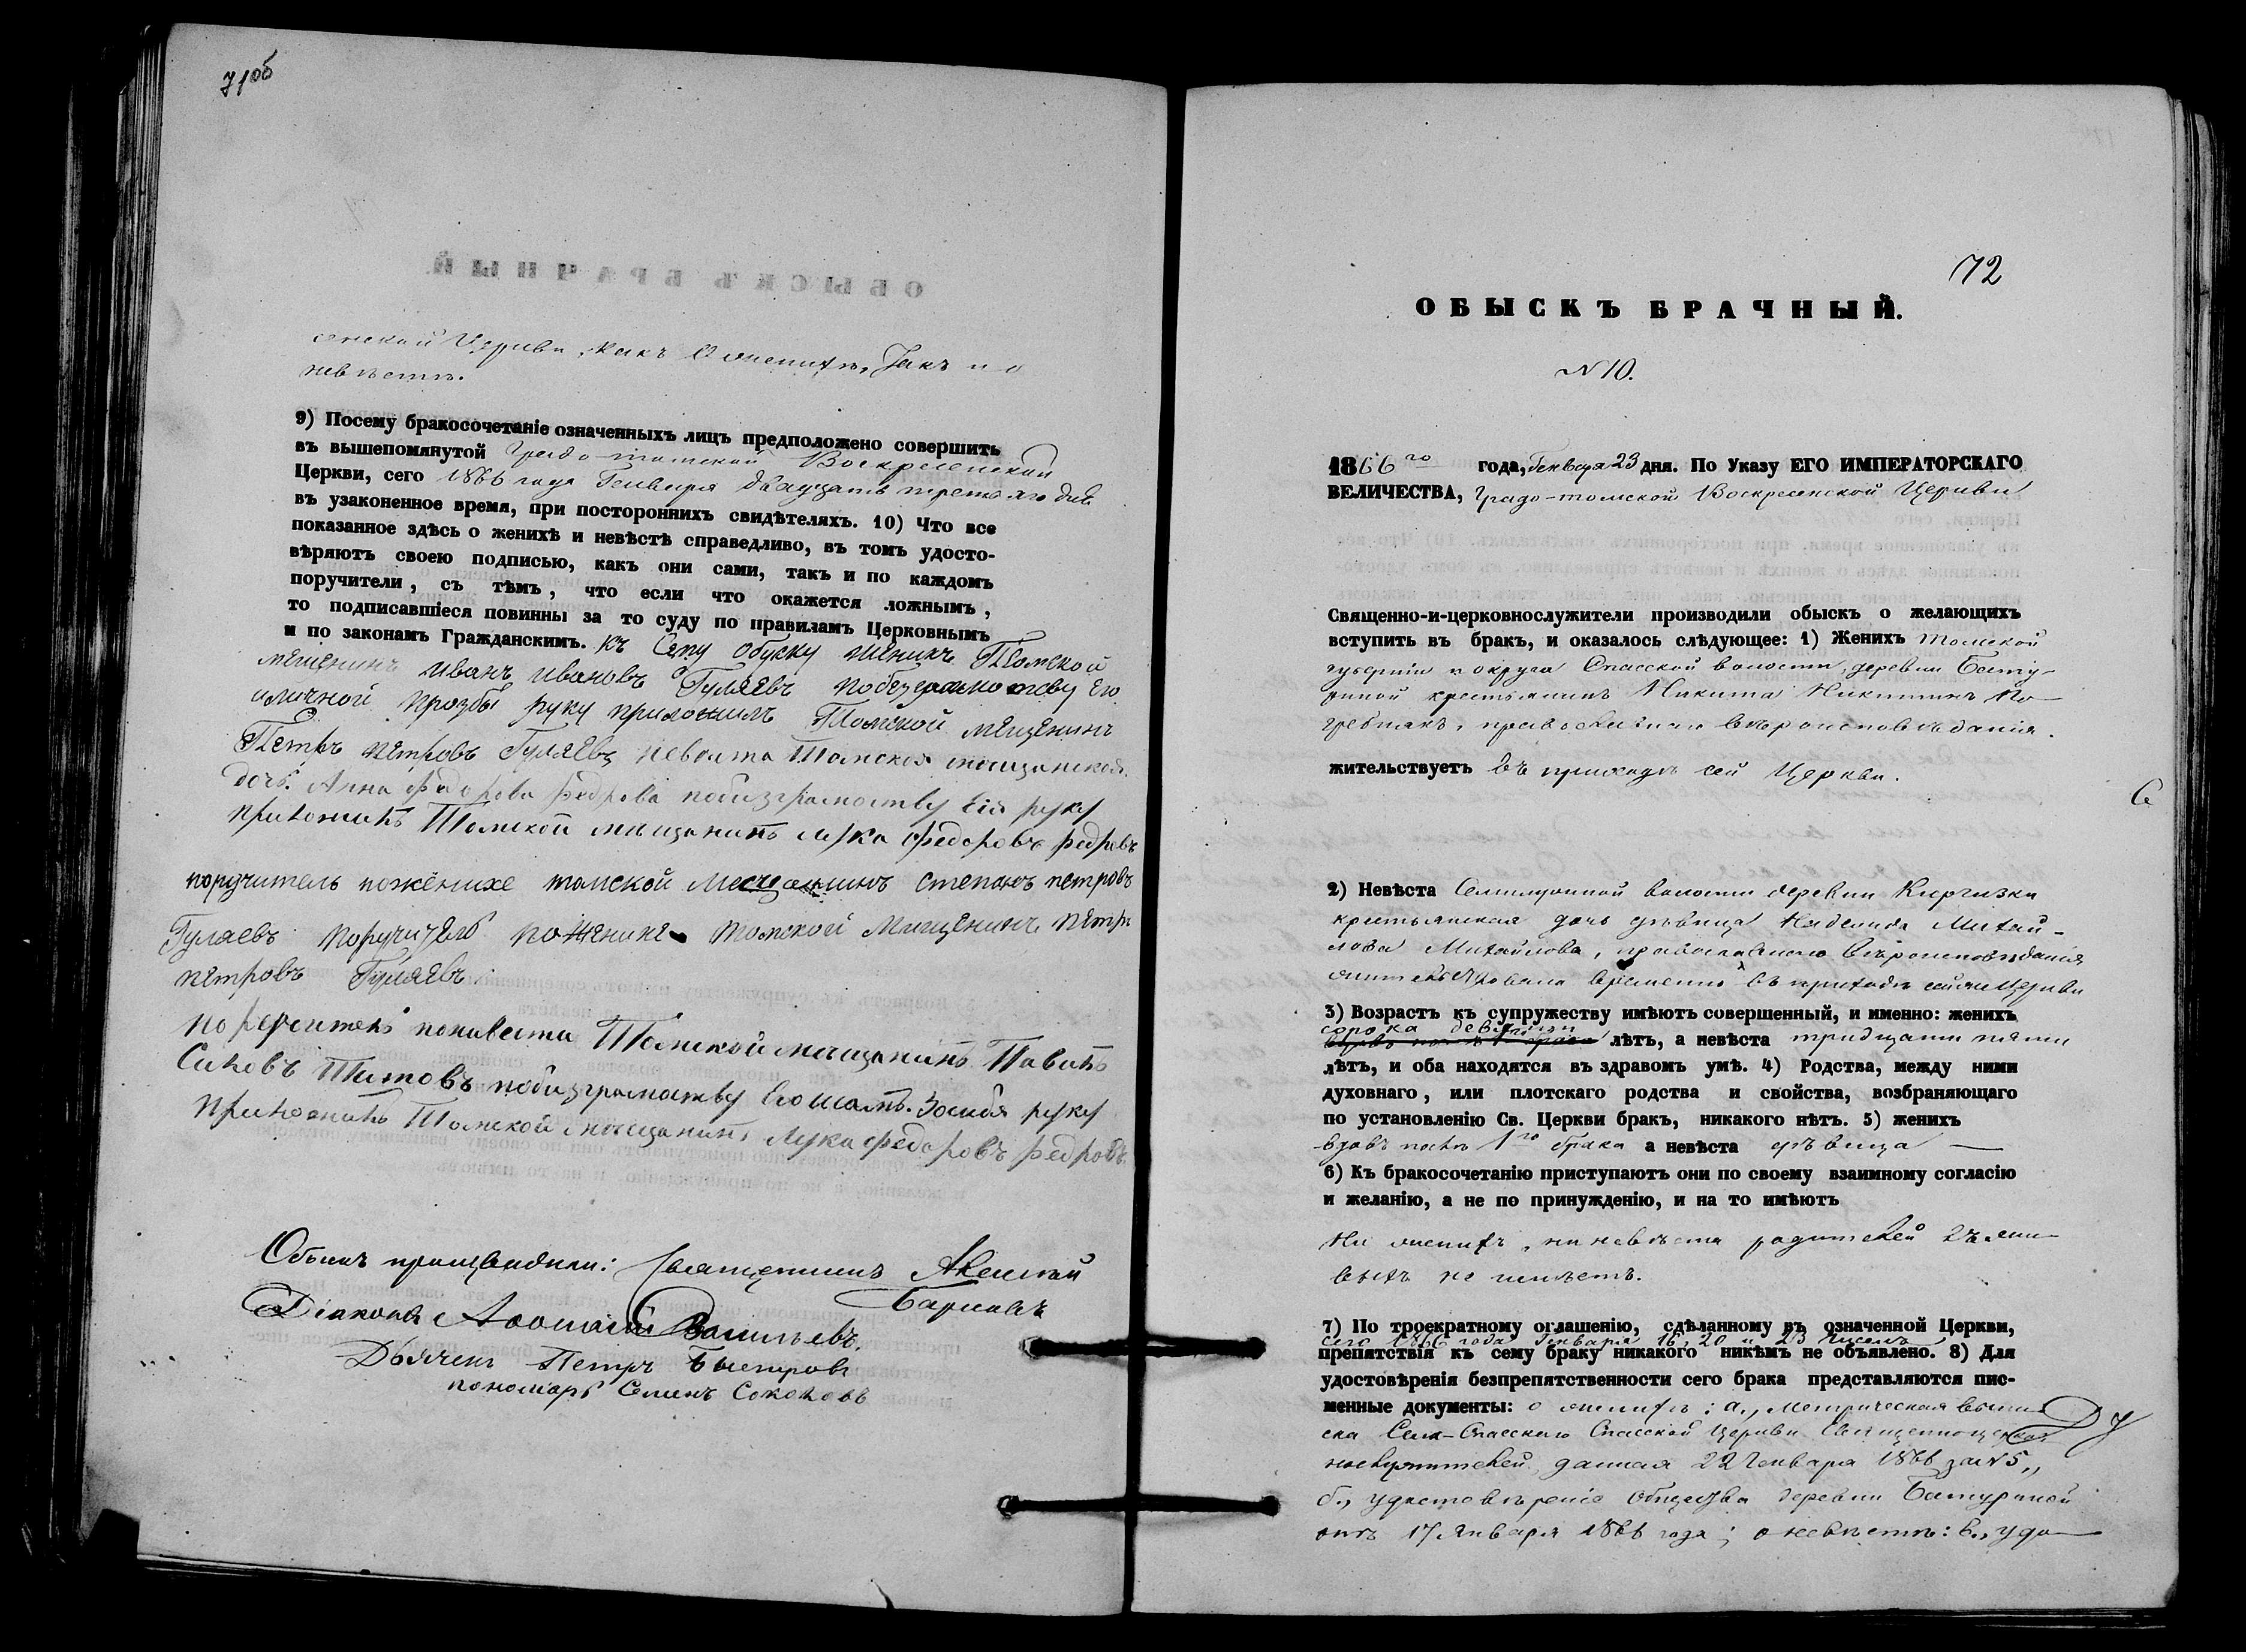 71об
сенской Церкви, какъ о женихѣ, такъ и о
невѣстѣ.
9) Посему бракосочетаніе означенныхъ лицъ предположено совершить
въ вышепомянутой Градо-томской Воскресенской
Церкви, сего 1866 года Генваря двадцать третьяго дня
въ узаконенное время, при постороннихъ свидѣтеляхъ. 10) Что все
показанное здѣсь о женихѣ и невѣстѣ справедливо, въ томъ удосто-
вѣряютъ своею подписью, какъ они сами, такъ и по каждомъ
поручители, съ тѣмъ, что если что окажется ложнымъ,
то подписавшіеся повинны за то суду по правиламъ Церковнымъ
и по законамъ Гражданскимъ. Къ Сему обуску женихъ Томской
мещенинъ Иванъ Ивановъ Гуляевъ его
иличной прозбы руку приложилъ Томской мещенинъ
Петръ петровъ Гуляевъ невеста Томская мещанская
дочь Анна Федорова Федрова побизграмоству Ея руку
приложилъ Томской мещанинъ Лука Федоровъ Федровъ
поручитель пожёнихе томской Мещенинъ степанъ петровъ
Гуляевъ поручитель поженихе томской Мищененъ Петръ
петровъ Гуляевъ
поручитель поневеста Томской мещанинъ Павилъ
Титовъ побизграмоству Его руку
приложилъ Томской мещанинъ Лука Федоровъ Федровъ
Обыскъ производили: Священникъ Алексей
Діаконъ Васильевъ.
Дьячекъ Петръ Быстровъ
пономарь Семенъ Соколовъ
72
ОБЫСКЪ БРАЧНЫЙ.
N 10.
1866го года, Генваря 23 дня. По Указу ЕГО ИМПЕРАТОРСКАГО
ВЕЛИЧЕСТВА, Градо-томской Воскресенской Церкви
Священно-и-церковнослужители производили обыскъ о желающихъ
вступить въ бракъ, и оказалось слѣдующее: 1) Женихъ Томской
губерніи и округа Спасской волости, деревни Бату-
риной крестьянинъ Никита Никитинъ По-
гребнякъ, православнаго вѣроисповѣданія.
жительствуетъ въ приходѣ сей Церкви.
2) Невѣста Семилужной волости деревни Киргизки
крестьянская дочь дѣвица Надежда Михай-
лова Михайлова, православнаго вѣроисповѣданія
жительствовала временно въ приходѣ сей же Церкви
3) Возрастъ къ супружеству имѣютъ совершенный, и именно: женихъ
сорока девяти лѣтъ, а невѣста тридцати пяти
лѣтъ, и оба находятся въ здравомъ умѣ. 4) Родства, между ними
духовнаго, или плотскаго родства и свойства, возбраняющаго
по установленію Св. Церкви бракъ, никакого нѣтъ. 5) женихъ
вдовъ послѣ 1го брака а невѣста дѣвица
6) Къ бракосочетанію приступаютъ они по своему взаимному согласію
и желанію, а не по принужденію, и на то имѣютъ
Ни женихъ, ни невѣста родителей въ жи-
выхъ не имѣетъ.
7) По троекратному оглашенію, сдѣланному въ означенной Церкви,
сего 1866 года Генваря 16, 20 и 23 чиселъ
препятствія къ сему браку никакого никѣмъ не объявлено. 8) Для
удостовѣренія безпрепятственности сего брака представляются пис-
менные документы: о женихѣ: а., Метрическая выпи-
ска Села-Спасскаго Спасской Церкви Священноцерков
нослужителей, данная 22 Генваря 1866 за N 5,,
б., удостовѣреніе Общества деревни Батуриной
отъ 17 Января 1866 года; о невѣстѣ: в., удо